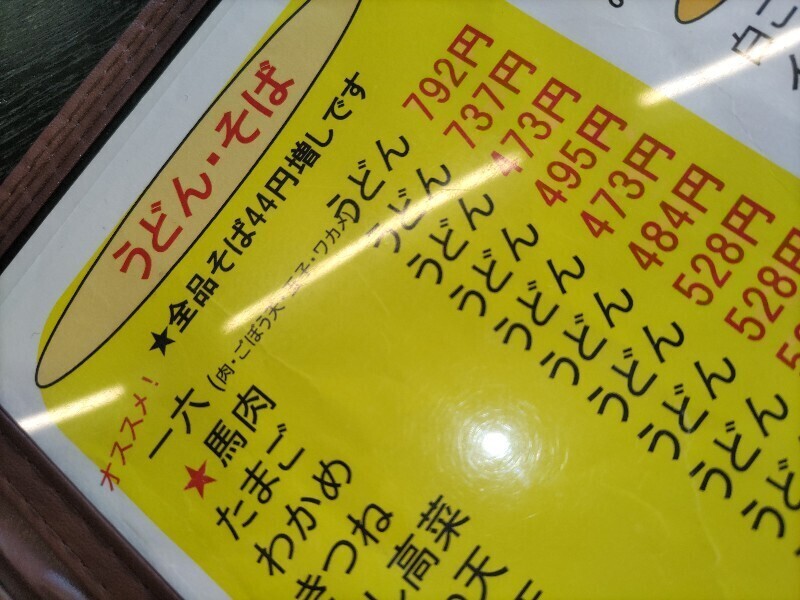 うどん・そば
★全品そば44円増しです
オススメ！
一六(肉・ごぼう天・玉子・ワカメ)うどん 792円
★馬肉うどん 737円
たまごうどん 473円
わかめうどん 495円
きつねうどん 473円
高菜うどん 484円
天うどん 528円
うどん 528円
うどん
うどん